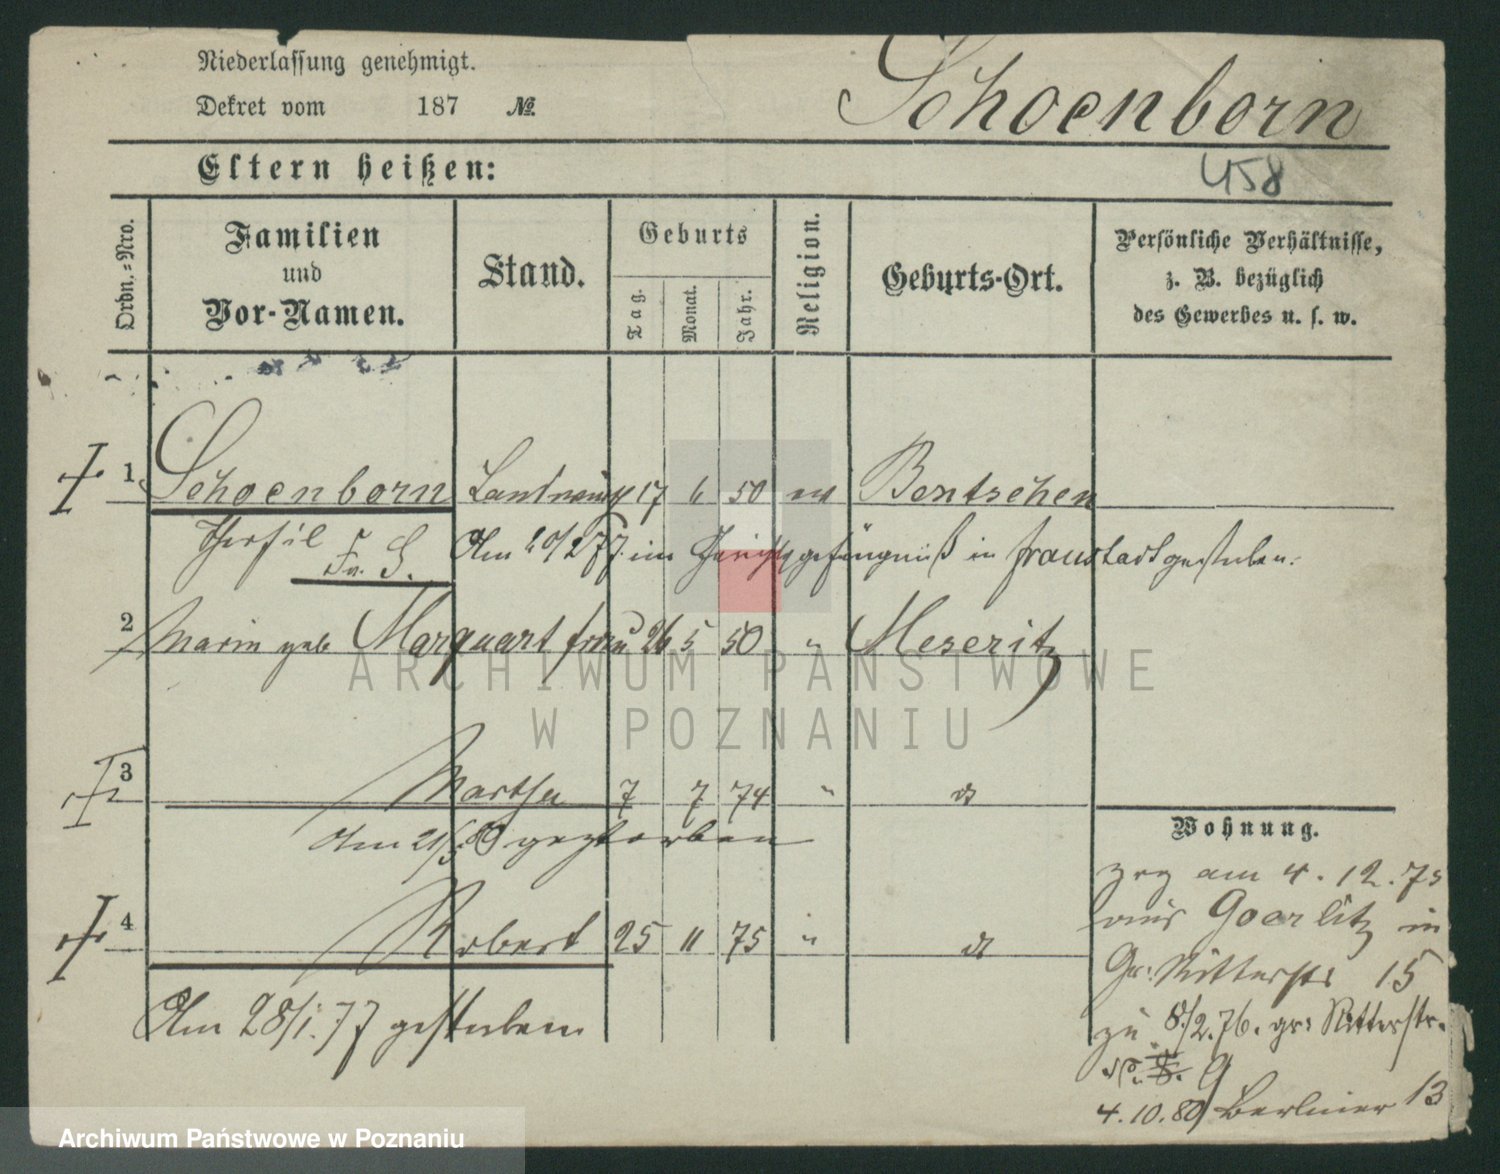 Niederlassung genehmigt.
Dekret vom 187 №
Schoenborn
Eltern heißen:
458
Ordn.=Nro.
Familien
und
Vor-Namen.
Stand.
Geburts
Tag.
Monat.
Jahr.
Religion.
Geburts-Ort.
Persönliche Verhältnisse,
z. B. bezüglich
des Gewerbes u. s. w.
1 Schoenborn Landwirth 17 6 50 ev Bentschen
Am 20/2 77. im Gerichtsgefängniß in Fraustadt gestorben.
2 Marie geb Marquart frau 26 5 50 " Meseritz
3 Martha 7 7 74 " dt
Am 21/5 80 gestorben
4 Robert 25 11 75 " dt
Am 28/1. 77 gestorben
Wohnung.
zog am 4. 12. 75
aus Goerlitz in
Gr: Ritterstr 15
zu 8./2. 76. gr: Ritterstr.
9
4. 10. 80 Berliner 13
ARCHIWUM PAŃSTWOWE
W POZNANIU
Archiwum Państwowe w Poznaniu